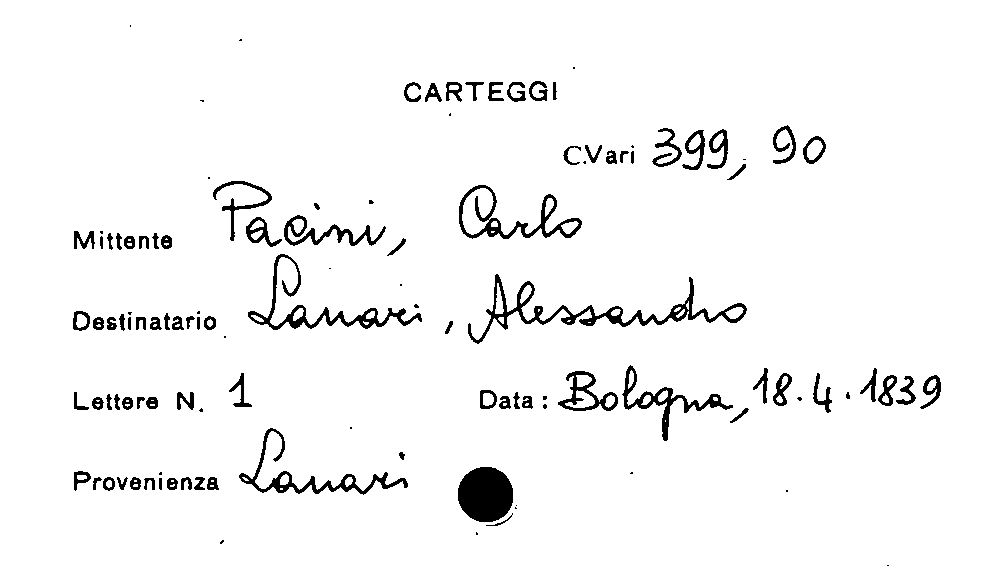 CARTEGGI
C.Vari 399, 90
Mittente Pacini, Carlo
Destinatario Lanari, Alessandro
Lettere N. 1 Data: Bologna, 18.4.1839
Provenienza Lanari